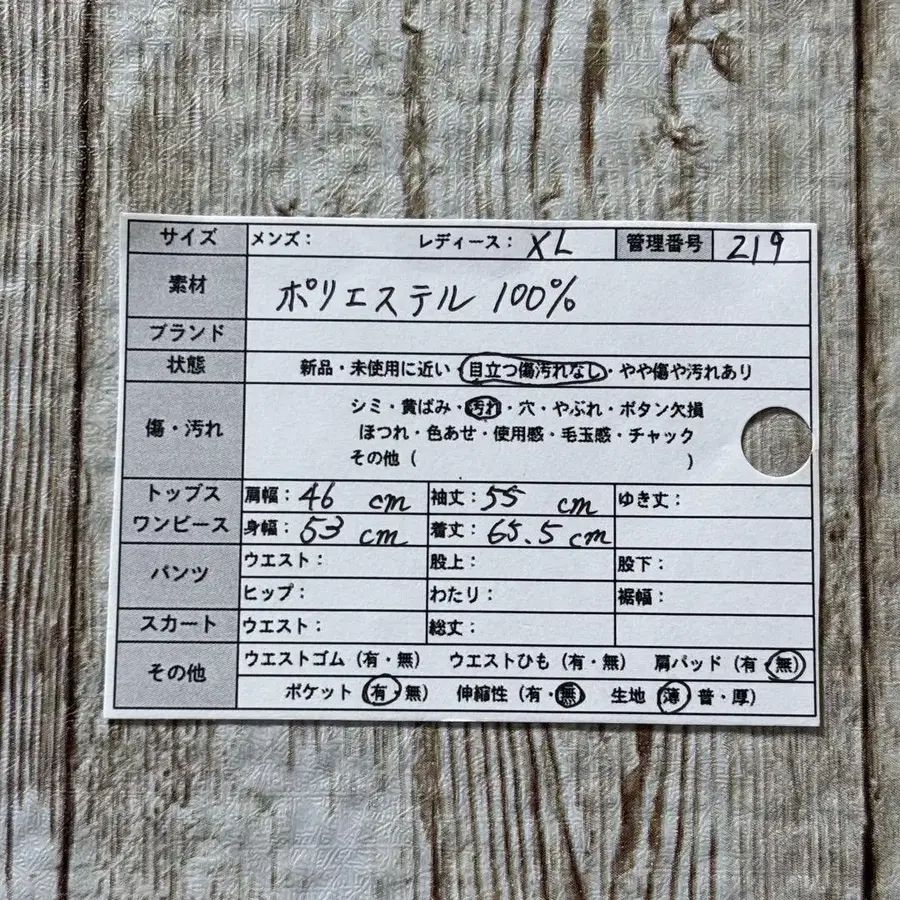 サイズ メンズ： レディース： XL 管理番号 219
素材 ポリエステル 100%
ブランド
状態 新品・未使用に近い・目立つ傷汚れなし・やや傷や汚れあり
傷・汚れ シミ・黄ばみ・汚れ・穴・やぶれ・ボタン欠損
ほつれ・色あせ・使用感・毛玉感・チャック
その他（ ）
トップス 肩幅：46 cm 袖丈：55 cm ゆき丈：
ワンピース 身幅：53 cm 着丈：65.5cm
パンツ ウエスト： 股上： 股下：
ヒップ： わたり： 裾幅：
スカート ウエスト： 総丈：
その他 ウエストゴム（有・無） ウエストひも（有・無） 肩パッド（有・無）
ポケット（有・無） 伸縮性（有・無） 生地（薄・普・厚）